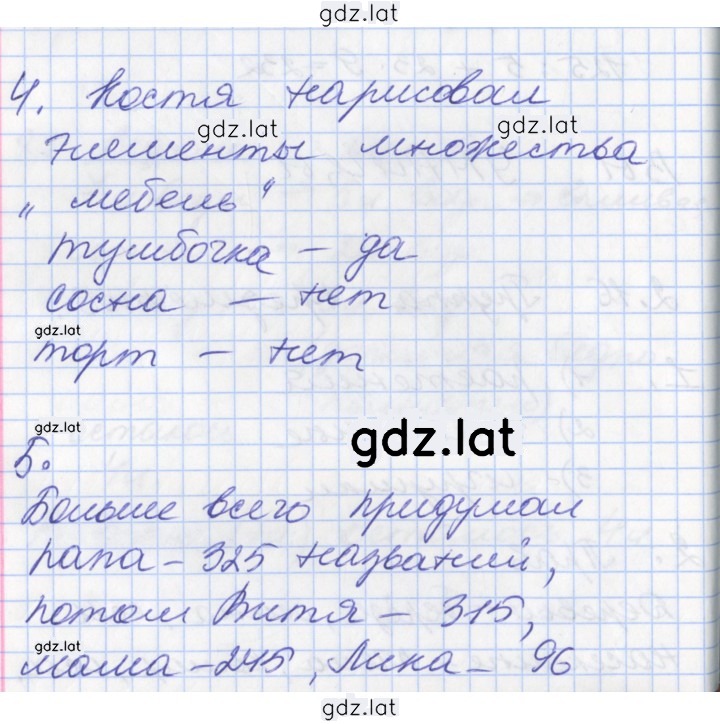 gdz.lat
4. Костя нарисовал
gdz.lat
gdz.lat
элементы множества
„мебель“
тумбочка – да
сосна – нет
gdz.lat
торт – нет
gdz.lat
gdz.lat
5.
Больше всего придумал
папа – 325 названий,
потом Витя – 315,
gdz.lat
мама – 245, Лика – 96
gdz.lat